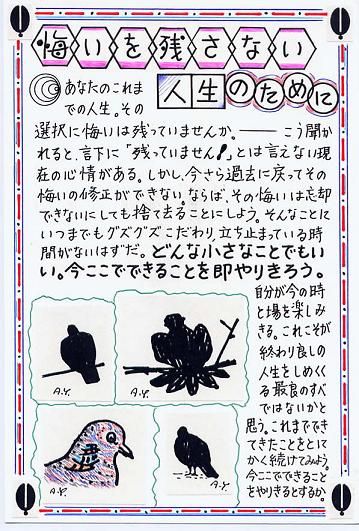 悔いを残さない
人生のために
あなたのこれま
での人生。その
選択に悔いは残っていませんか。―― こう聞か
れると、言下に「残っていません!」とは言えない現
在の心情がある。しかし、今さら過去に戻ってその
悔いの修正ができない。ならば、その悔いは忘却
できないにしても捨て去ることにしよう。そんなことに
いつまでもグズグズこだわり、立ち止まっている時
間がないはずだ。どんな小さなことでもい
い。今ここでできることを即やりきろう。
自分が今の時
と場を楽しみ
きる。これこそが
終わり良しの
人生をしめくく
る最良のすべ
ではないかと
思う。これまでで
てきたことをとに
かく続けてみよう。
今ここでできること
をやりきるとするか。
A.Y.
A.Y.
A.Y.
A.Y.